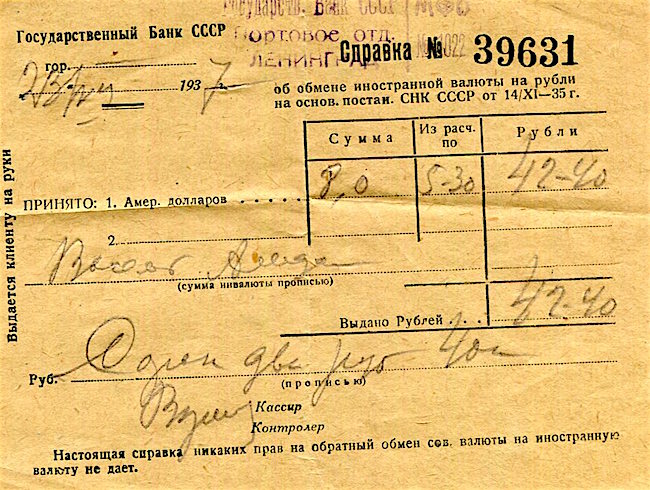 Государственный Банк СССР
Государств. Банк СССР
Портовое отд.
ЛЕНИНГРАД
гор.
193 7
Справка № 39631
об обмене иностранной валюты на рубли
на основ. постан. СНК СССР от 14/XI—35 г.
Сумма Из расч. по Рубли
ПРИНЯТО: 1. Амер. долларов 8,0 5-30 42-40
2.
Восемь
(сумма инвалюты прописью)
Выдано Рублей 42-40
Руб. Сорок два руб 40к
(прописью)
Кассир
Контролер
Настоящая справка никаких прав на обратный обмен сов. валюты на иностранную
валюту не дает.
Выдается клиенту на руки